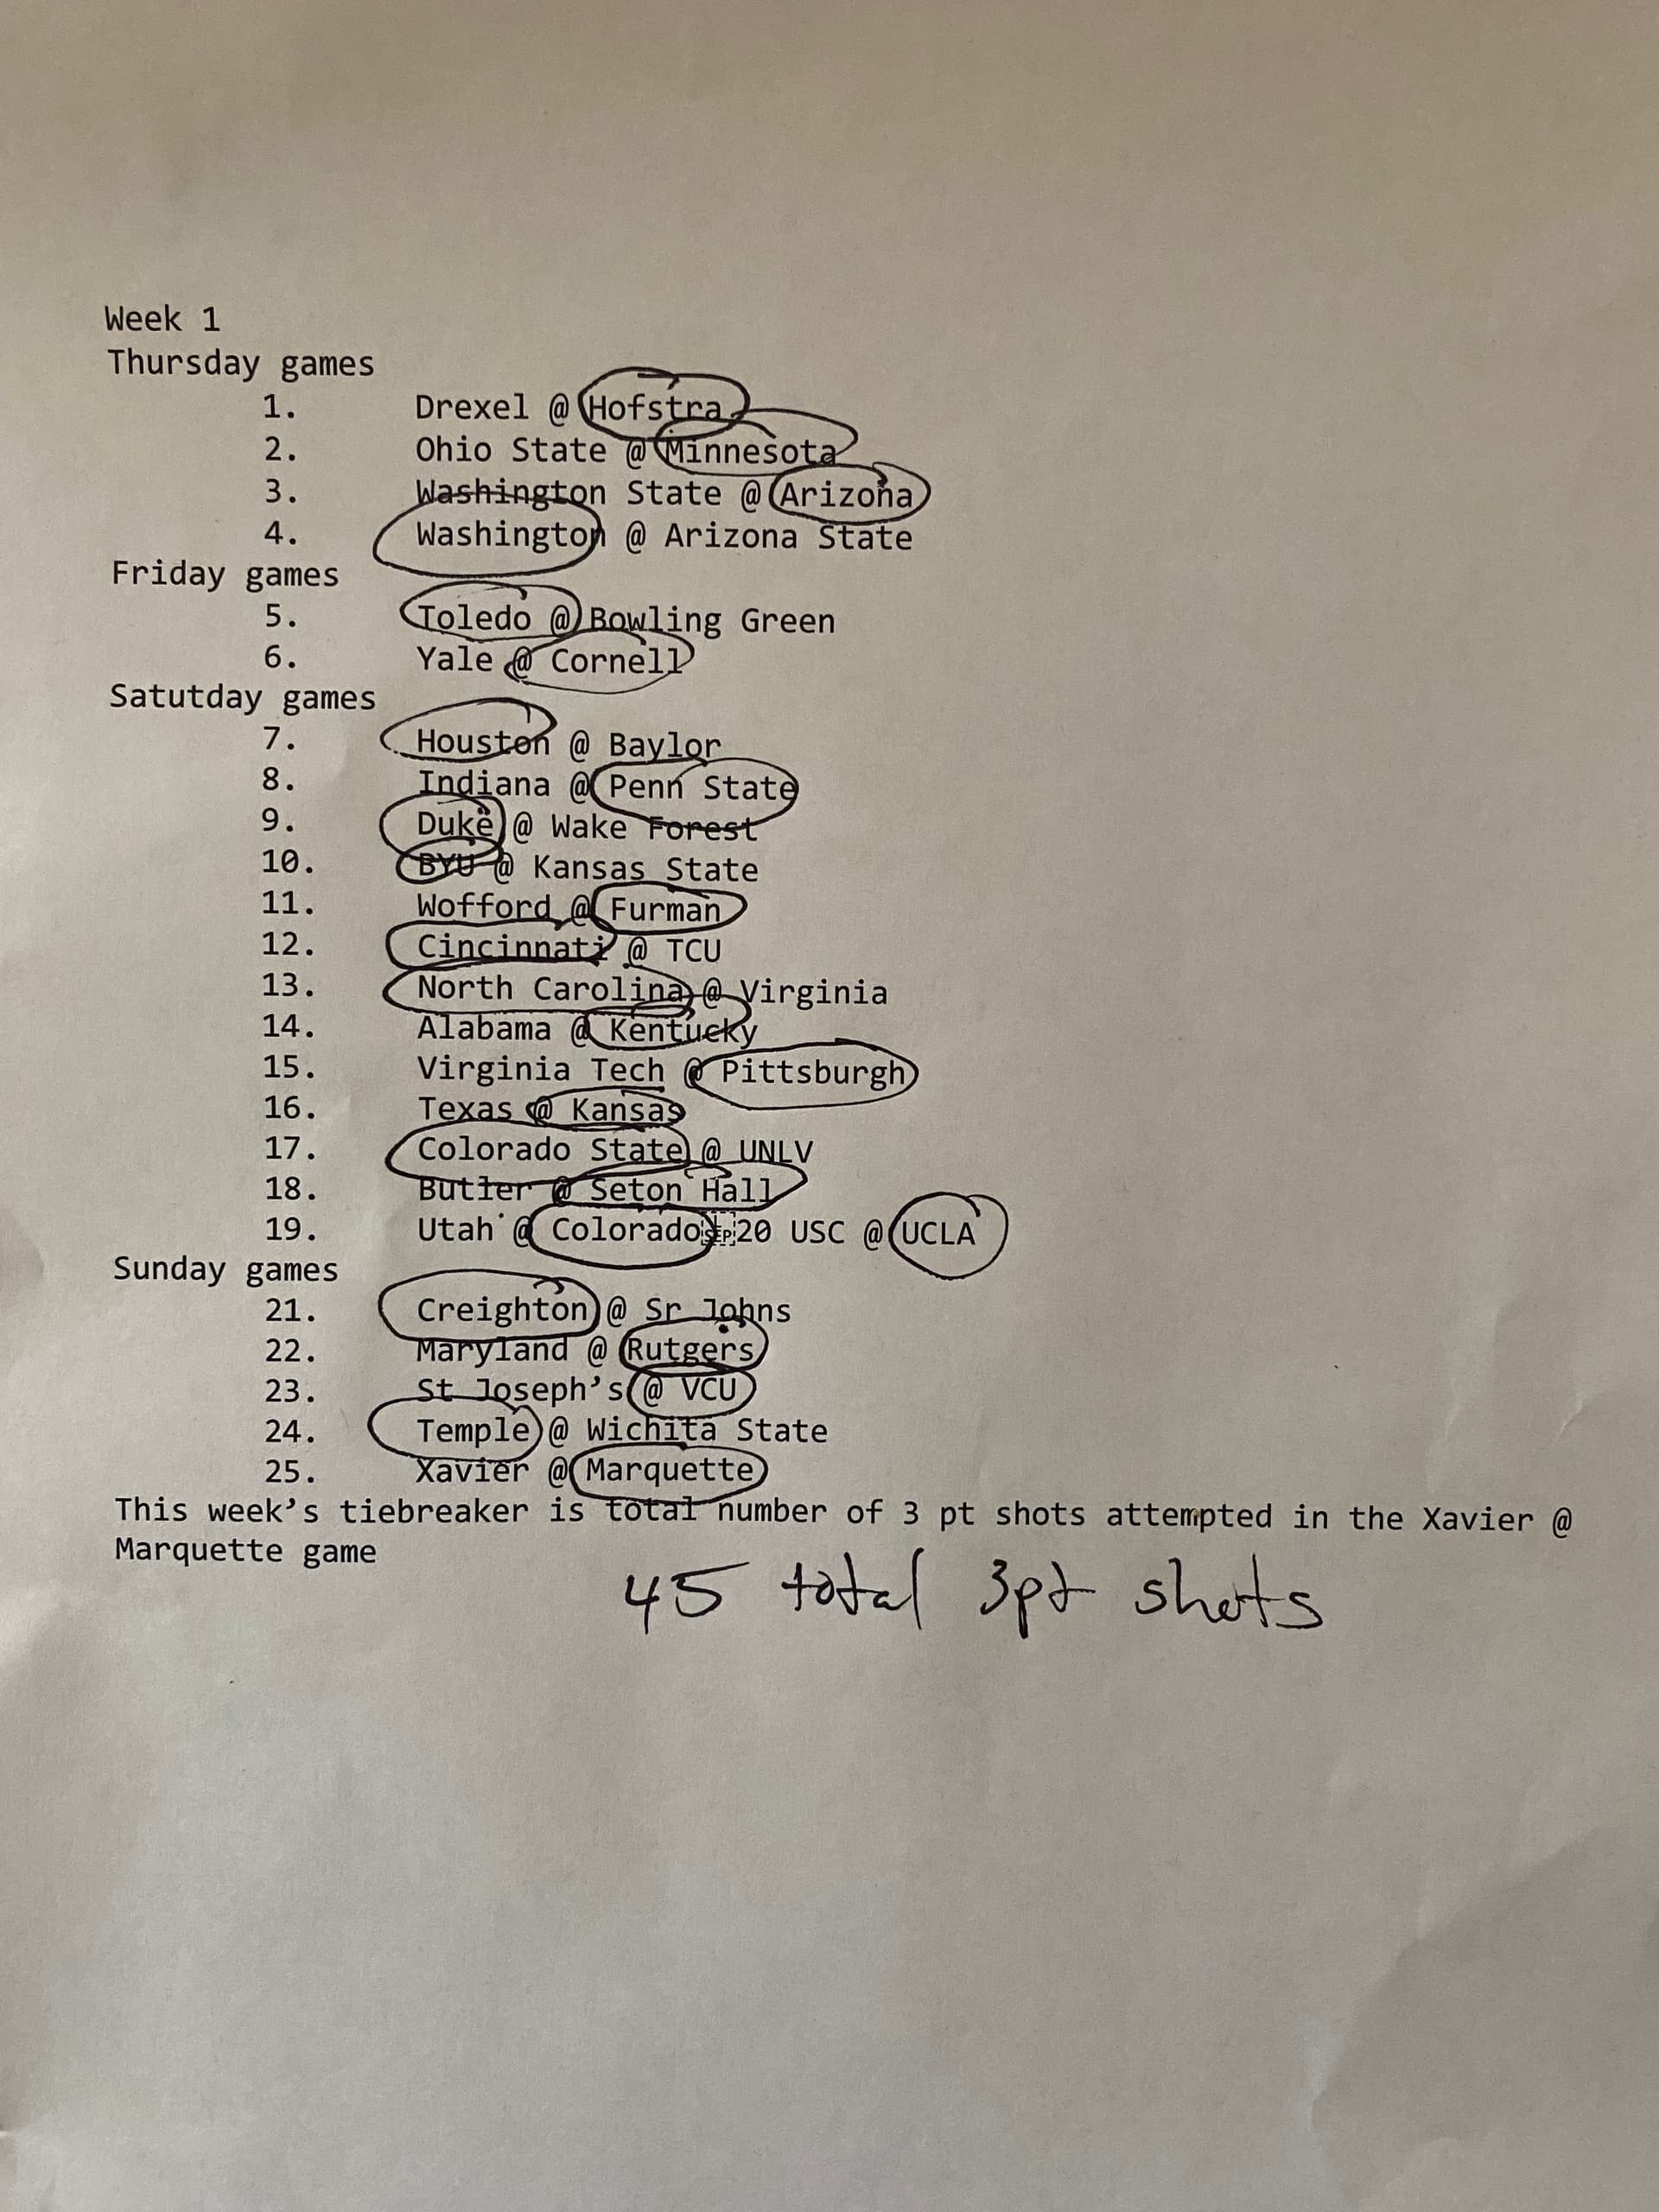 Week 1
Thursday games
1. Drexel @ Hofstra
2. Ohio State @ Minnesota
3. Washington State @ Arizona
4. Washington @ Arizona State
Friday games
5. Toledo @ Bowling Green
6. Yale @ Cornell
Satutday games
7. Houston @ Baylor
8. Indiana @ Penn State
9. Duke @ Wake Forest
10. BYU @ Kansas State
11. Wofford @ Furman
12. Cincinnati @ TCU
13. North Carolina @ Virginia
14. Alabama @ Kentucky
15. Virginia Tech @ Pittsburgh
16. Texas @ Kansas
17. Colorado State @ UNLV
18. Butler @ Seton Hall
19. Utah @ Colorado 20 USC @ UCLA
Sunday games
21. Creighton @ Sr Johns
22. Maryland @ Rutgers
23. St Joseph’s @ VCU
24. Temple @ Wichita State
25. Xavier @ Marquette
This week’s tiebreaker is total number of 3 pt shots attempted in the Xavier @
Marquette game
45 total 3pt shots